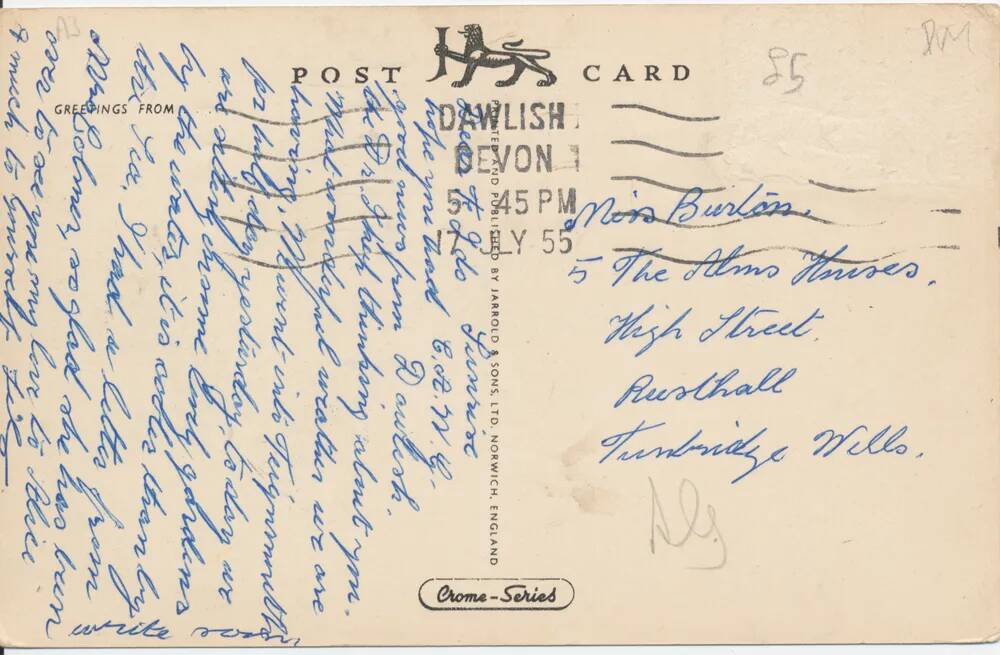 POST CARD
GREETINGS FROM
PRINTED AND PUBLISHED BY JARROLD & SONS, LTD. NORWICH, ENGLAND
Crome-Series
DAWLISH
DEVON
5 45 PM
17 JLY 55
£5
A3
Miss Burton.
5 The Alms Houses,
High Street.
Rusthall
Tunbridge Wells.
Sunrise
C.A.W.G.
Dawlish.
hope you had
good news from
the Dr. Keep thinking about you.
What wonderful weather we are
having, We went into Teignmouth
for half day yesterday, today we
are sitting in some lovely gardens
by the water, it is cooler than by
the sea, I had a letter from
Mrs Colmer, so glad she has been
over to see you my love to Alice
& much to yourself
write soon